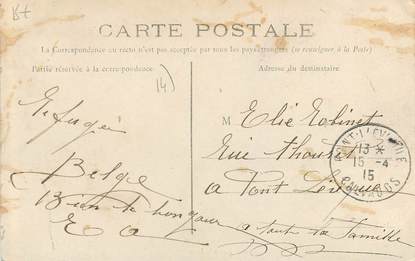 CARTE POSTALE
La Correspondance au recto n'est pas acceptée par tous les pays étrangers (se renseigner à la Poste)
Partie réservée à la correspondance
Adresse du destinataire
14)
Réfugié
Belge
Bien le bonjour a toute la famille
M Elie Robinet
Rue Thouret
a Pont Leveque
PONT-L'EVEQUE
13 *
15-4
15
CALVADOS